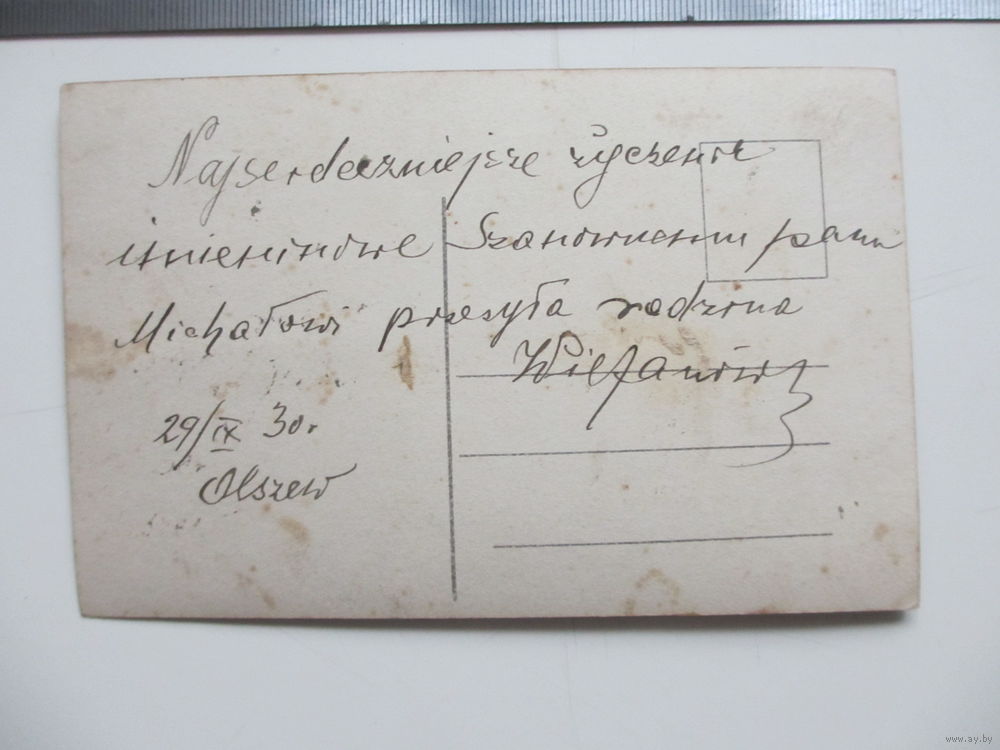 Najserdeczniejsze życzenia
imieninowe Szanownemu panu
Michałowi przesyła rodzina
29/IX 30.
Olszew
www.ay.by